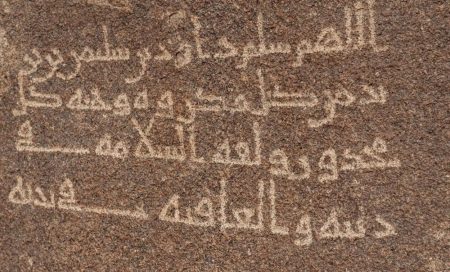 اللهم سلم داود بن سلمن بن يز
يد من كل مكروه وجنبه كل
محذور ولقه السلامه في
دينه والعافيه في بدنه